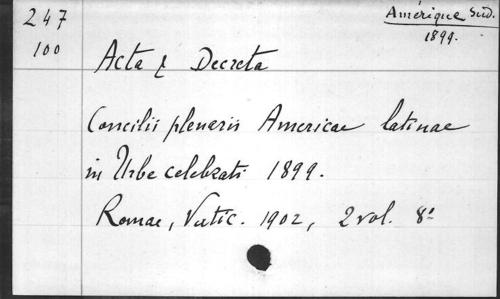 247
100
Amérique Sud.
1899.
Acta & Decreta
Concilii plenaris Americae latinae
in Urbe celebrati 1899.
Romae, Vatic. 1902, 2 vol. 8°